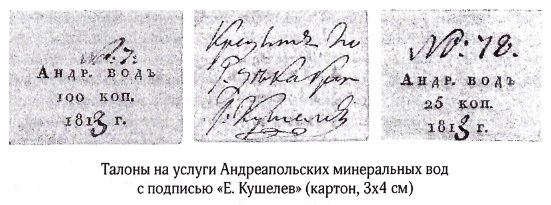 №: 7.
Андр. водъ
100 коп.
1813 г.
Кушелев
№: 78.
Андр. водъ
25 коп.
1813 г.
Талоны на услуги Андреапольских минеральных вод
с подписью «Е. Кушелев» (картон, 3х4 см)